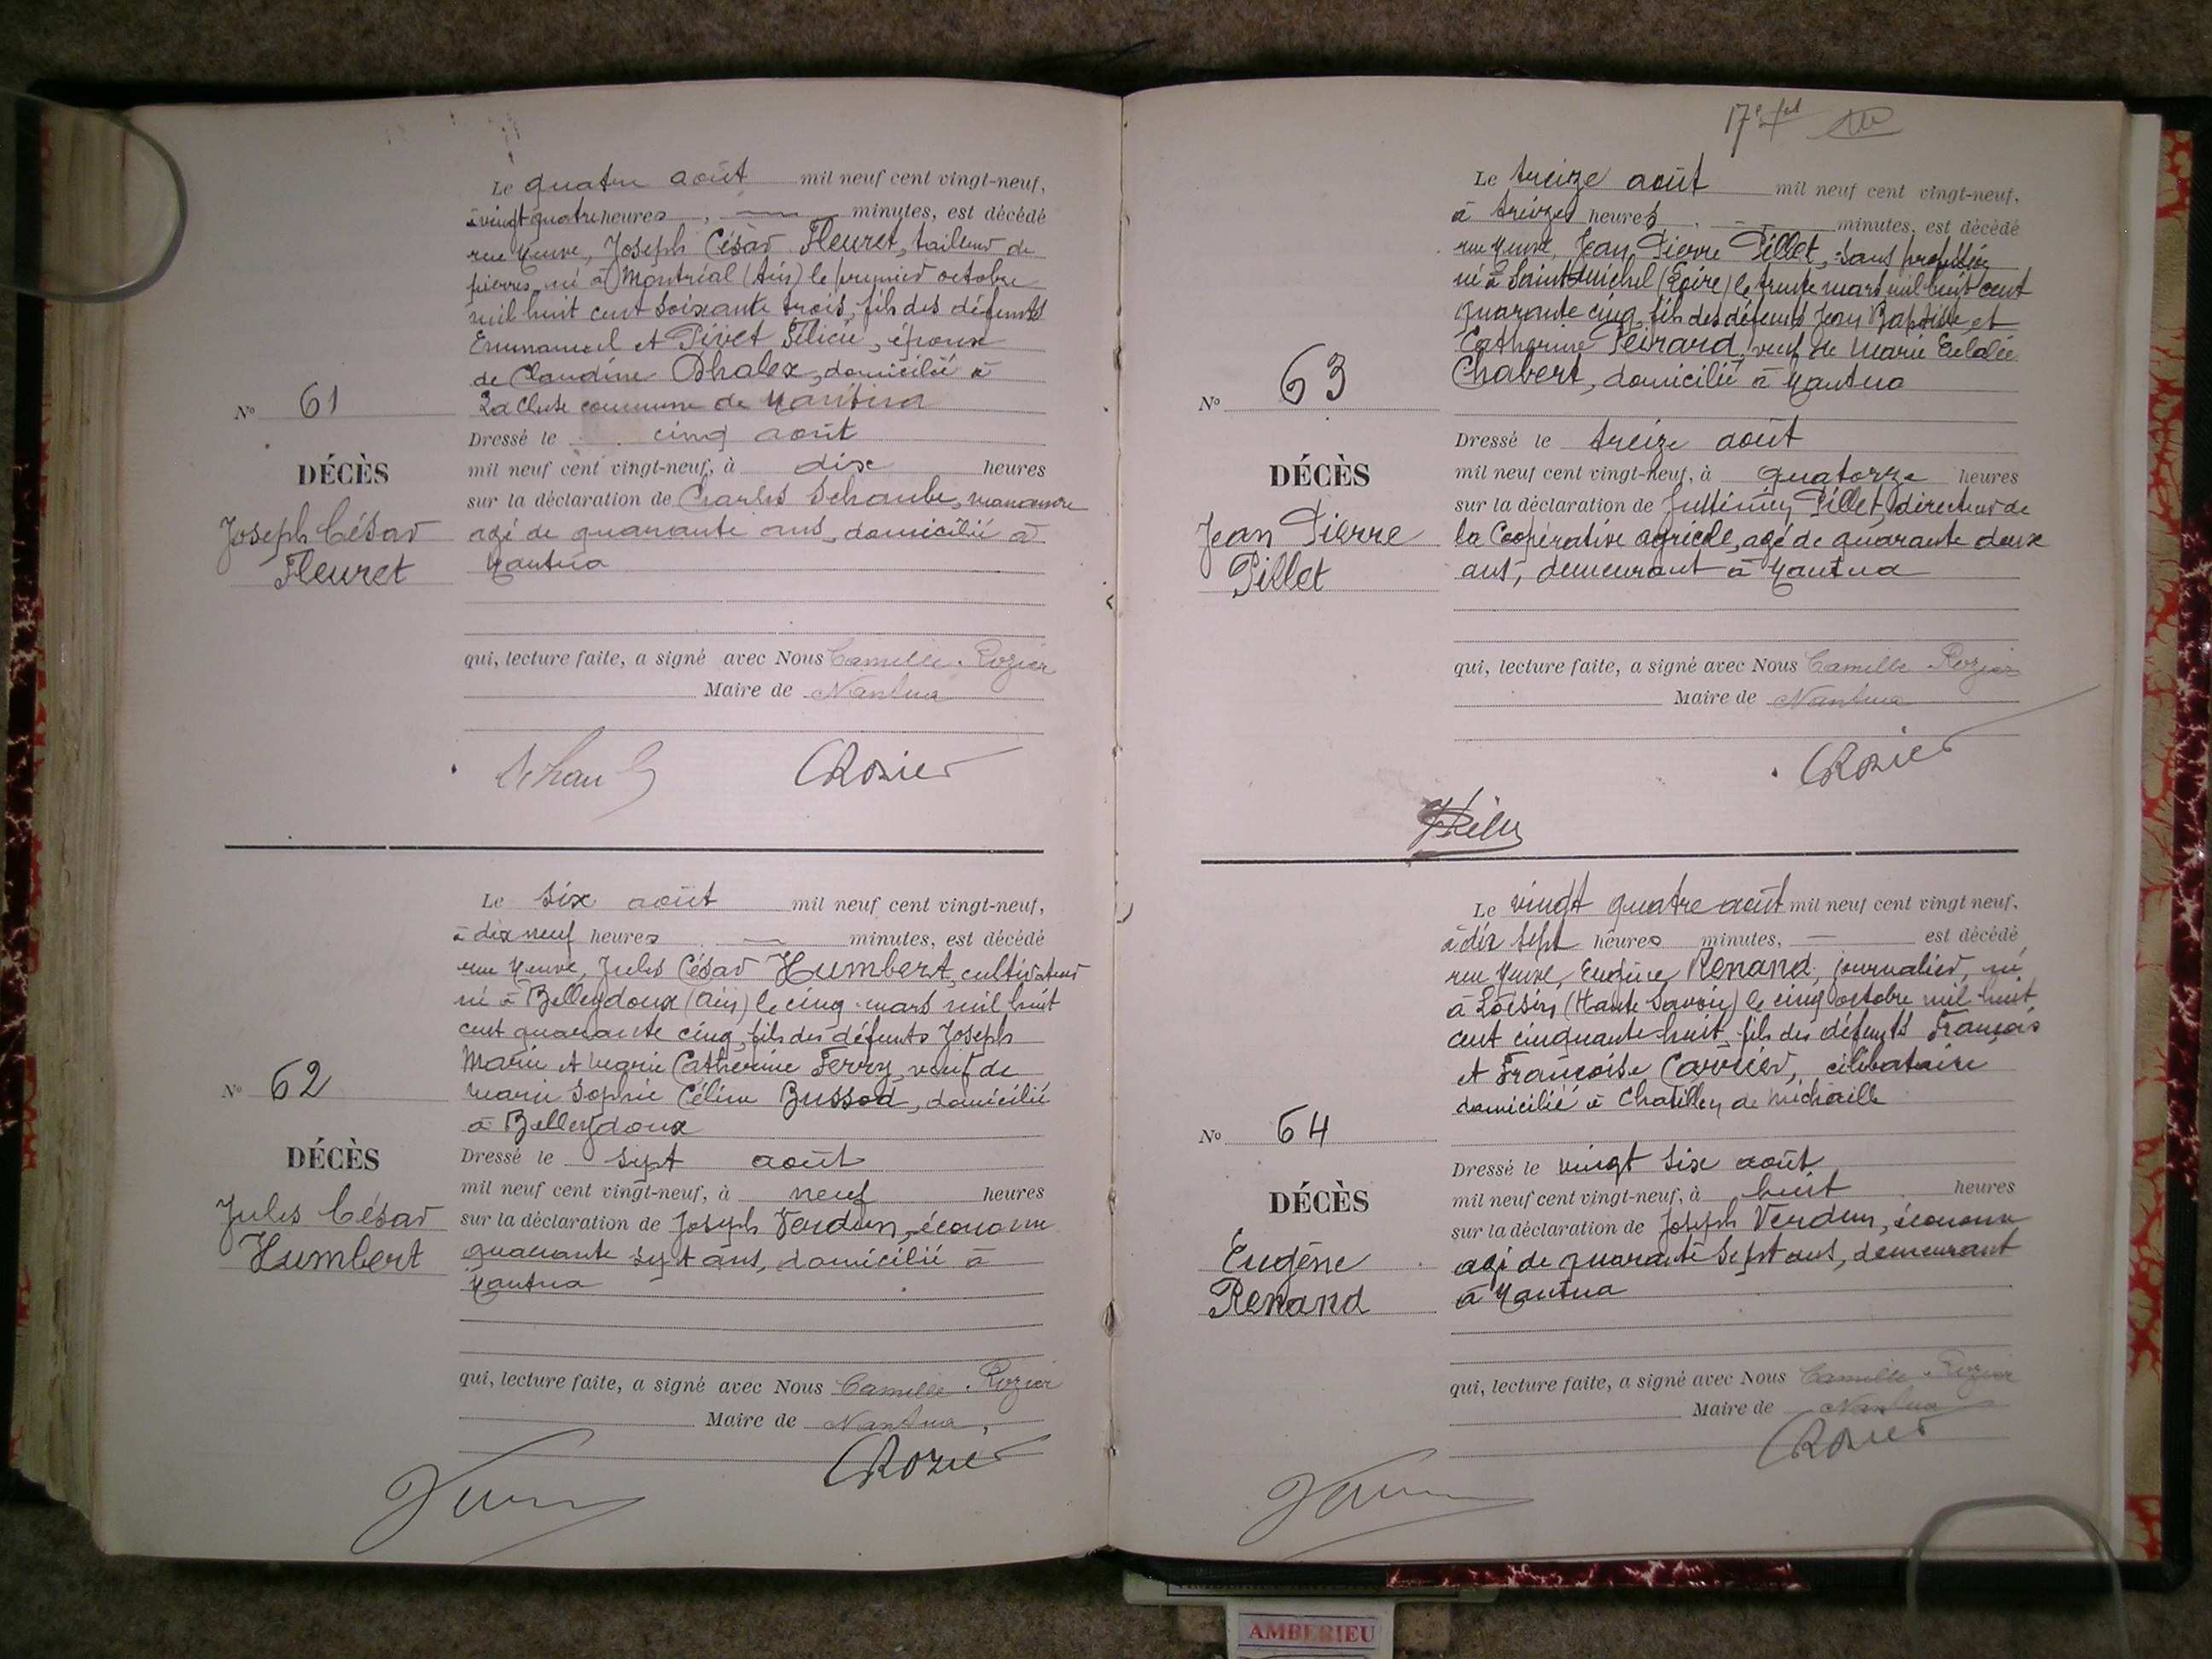 Le quatre août mil neuf cent vingt-neuf,
à vingt quatre heures, — minutes, est décédé
rue Neuve, Joseph César Fleuret, tailleur de
pierres, né à Montréal (Ain) le premier octobre
mil huit cent soixante trois, fils des défunts
Emmanuel et Pivet Félicie, époux
de Claudine Dhalex, domicilié à
La Cluse commune de Nantua
Nº 61
Dressé le cinq août
DÉCÈS
mil neuf cent vingt-neuf, à dix heures
sur la déclaration de Charles Schaube, manœuvre
Joseph César
agé de quarante ans, domicilié à
Fleuret
Nantua
qui, lecture faite, a signé avec Nous Camille Rozier
Maire de Nantua
CRozier
Le six août mil neuf cent vingt-neuf,
à dix neuf heures — minutes, est décédé
rue Neuve, Jules César Humbert, cultivateur
né à Belleydoux (Ain) le cinq mars mil huit
cent quarante cinq, fils des défunts Joseph
Marie et Marie Catherine Ferry, veuf de
Marie Sophie Céline Bussod, domicilié
à Belleydoux
Nº 62
Dressé le sept août
DÉCÈS
mil neuf cent vingt-neuf, à neuf heures
Jules César
sur la déclaration de Joseph Verdun, économe
Humbert
quarante sept ans, domicilié à
Nantua
qui, lecture faite, a signé avec Nous Camille Rozier
Maire de Nantua,
CRozier
17e
Le treize août mil neuf cent vingt-neuf,
à treize heures, — minutes, est décédé
rue Neuve, Jean Pierre Pillet, sans profession
né à Saint Michel (Loire) le trente mars mil huit cent
quarante cinq, fils des défunts Jean Baptiste et
Catherine Peirard, veuf de Marie Eulalie
Chavert, domicilié à Nantua
Nº 63
Dressé le treize août
DÉCÈS
mil neuf cent vingt-neuf, à quatorze heures
sur la déclaration de Pillet, directeur de
Jean Pierre
la Coopérative agricole, agé de quarante deux
Pillet
ans, demeurant à Nantua
qui, lecture faite, a signé avec Nous Camille Rozier
Maire de Nantua
CRozier
Le vingt quatre août mil neuf cent vingt neuf,
à dix sept heures minutes, — est décédé
rue Neuve, Eugène Renand, journalier, né
à Loisin (Haute Savoie) le cinq octobre mil huit
cent cinquante huit, fils des défunts François
et Françoise Carrier, célibataire
domicilié à Chatillon de Michaille
Nº 64
Dressé le vingt six août
DÉCÈS
mil neuf cent vingt-neuf, à huit heures
sur la déclaration de Joseph Verdun, économe
Eugène
agé de quarante sept ans, demeurant
Renand
à Nantua
qui, lecture faite, a signé avec Nous Camille Rozier
Maire de Nantua
CRozier
AMBERIEU